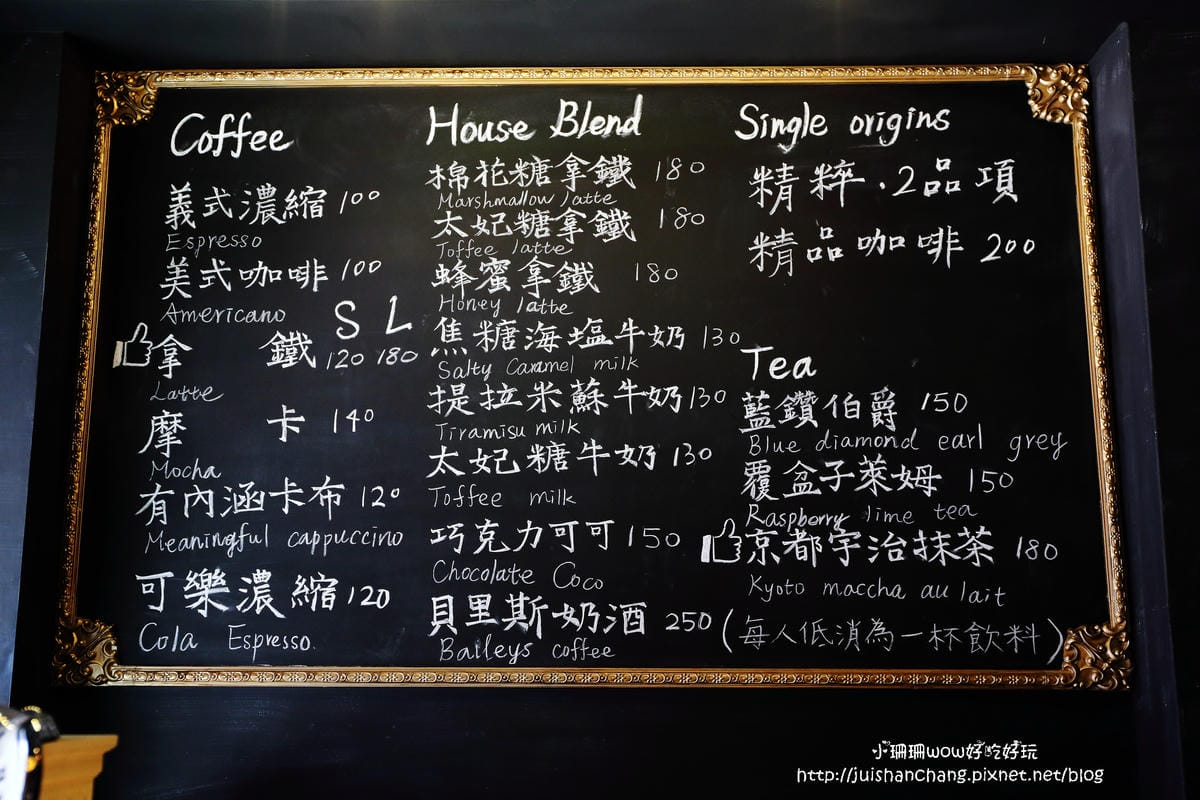 Coffee
義式濃縮 100
Espresso
美式咖啡 100
Americano
S L
拿鐵 120 180
Latte
摩卡 140
Mocha
有內涵卡布 120
Meaningful cappuccino
可樂濃縮 120
Cola Espresso.
House Blend
棉花糖拿鐵 180
Marshmallow latte
太妃糖拿鐵 180
Toffee latte
蜂蜜拿鐵 180
Honey latte
焦糖海塩牛奶 130
Salty Caramel milk
提拉米蘇牛奶 130
Tiramisu milk
太妃糖牛奶 130
Toffee milk
巧克力可可 150
Chocolate Coco
貝里斯奶酒 250
Baileys coffee
Single origins
精粹.2品項
精品咖啡 200
Tea
藍鑽伯爵 150
Blue diamond earl grey
覆盆子萊姆 150
Raspberry lime tea
京都宇治抹茶 180
Kyoto maccha au lait
(每人低消為一杯飲料)
小珊珊wow好吃好玩
http://juishanchang.pixnet.net/blog